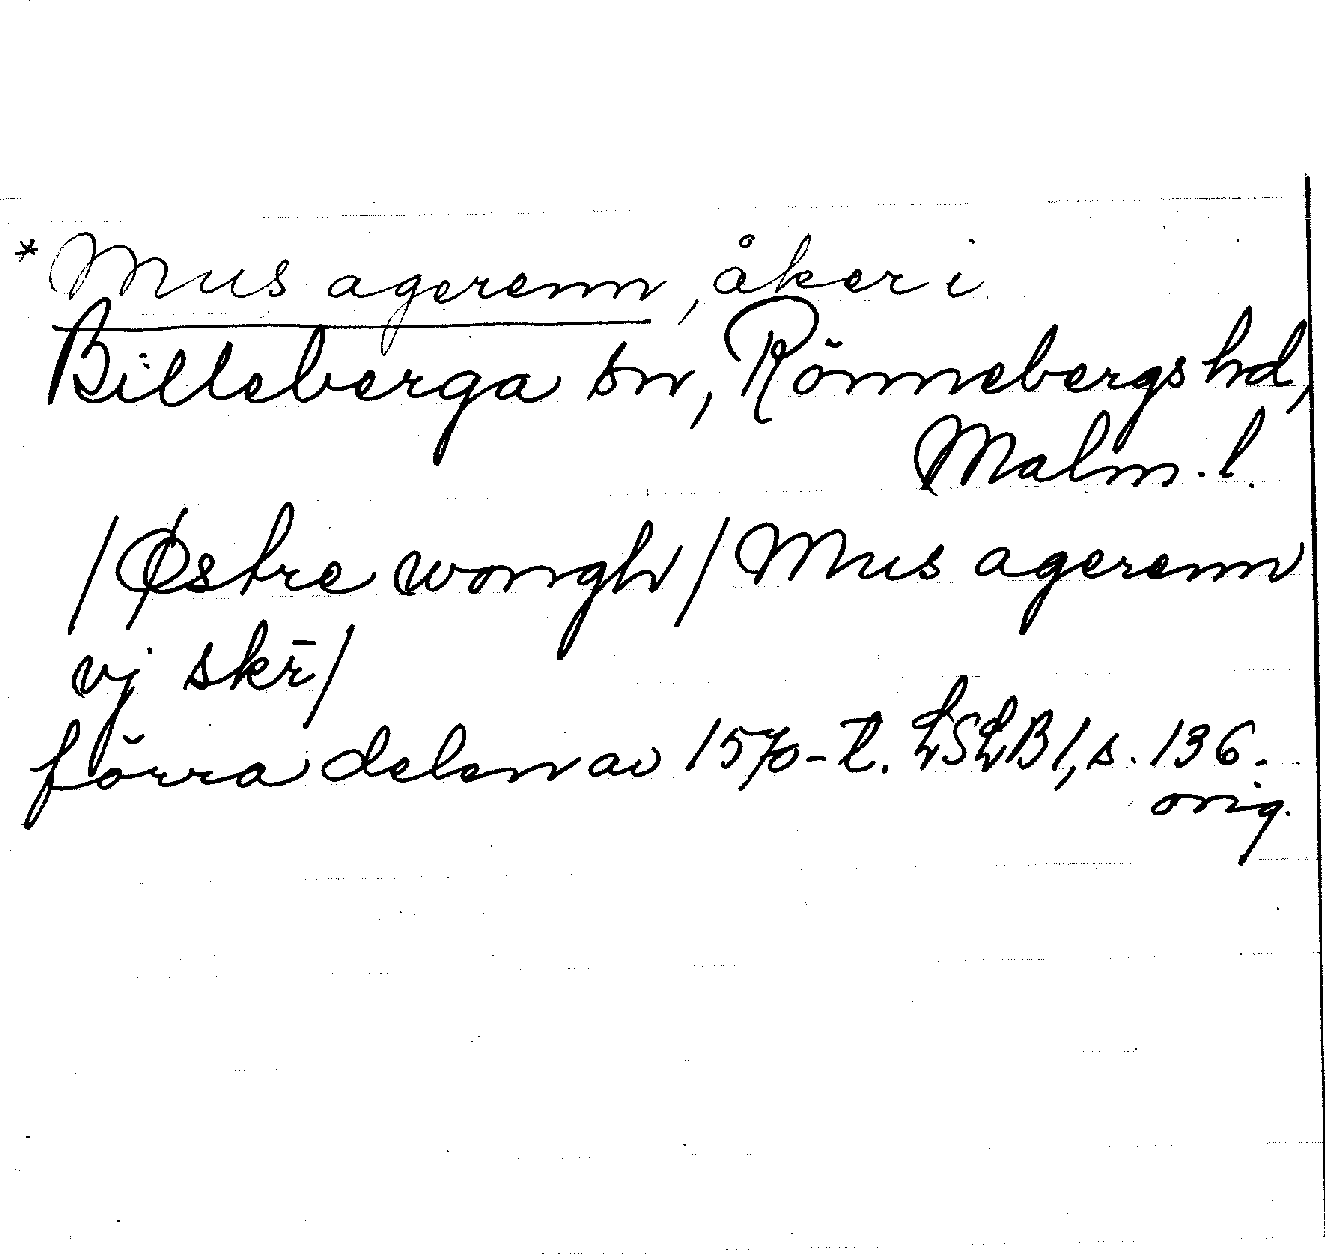 * Mus agerenn, åker i
Billeberga sn, Rönnebergs hd,
Malm. l.
/Østre wongh/ Mus agerenn
vj skr̄/
förra delen av 1570-t. LSLB 1, s. 136.
orig.